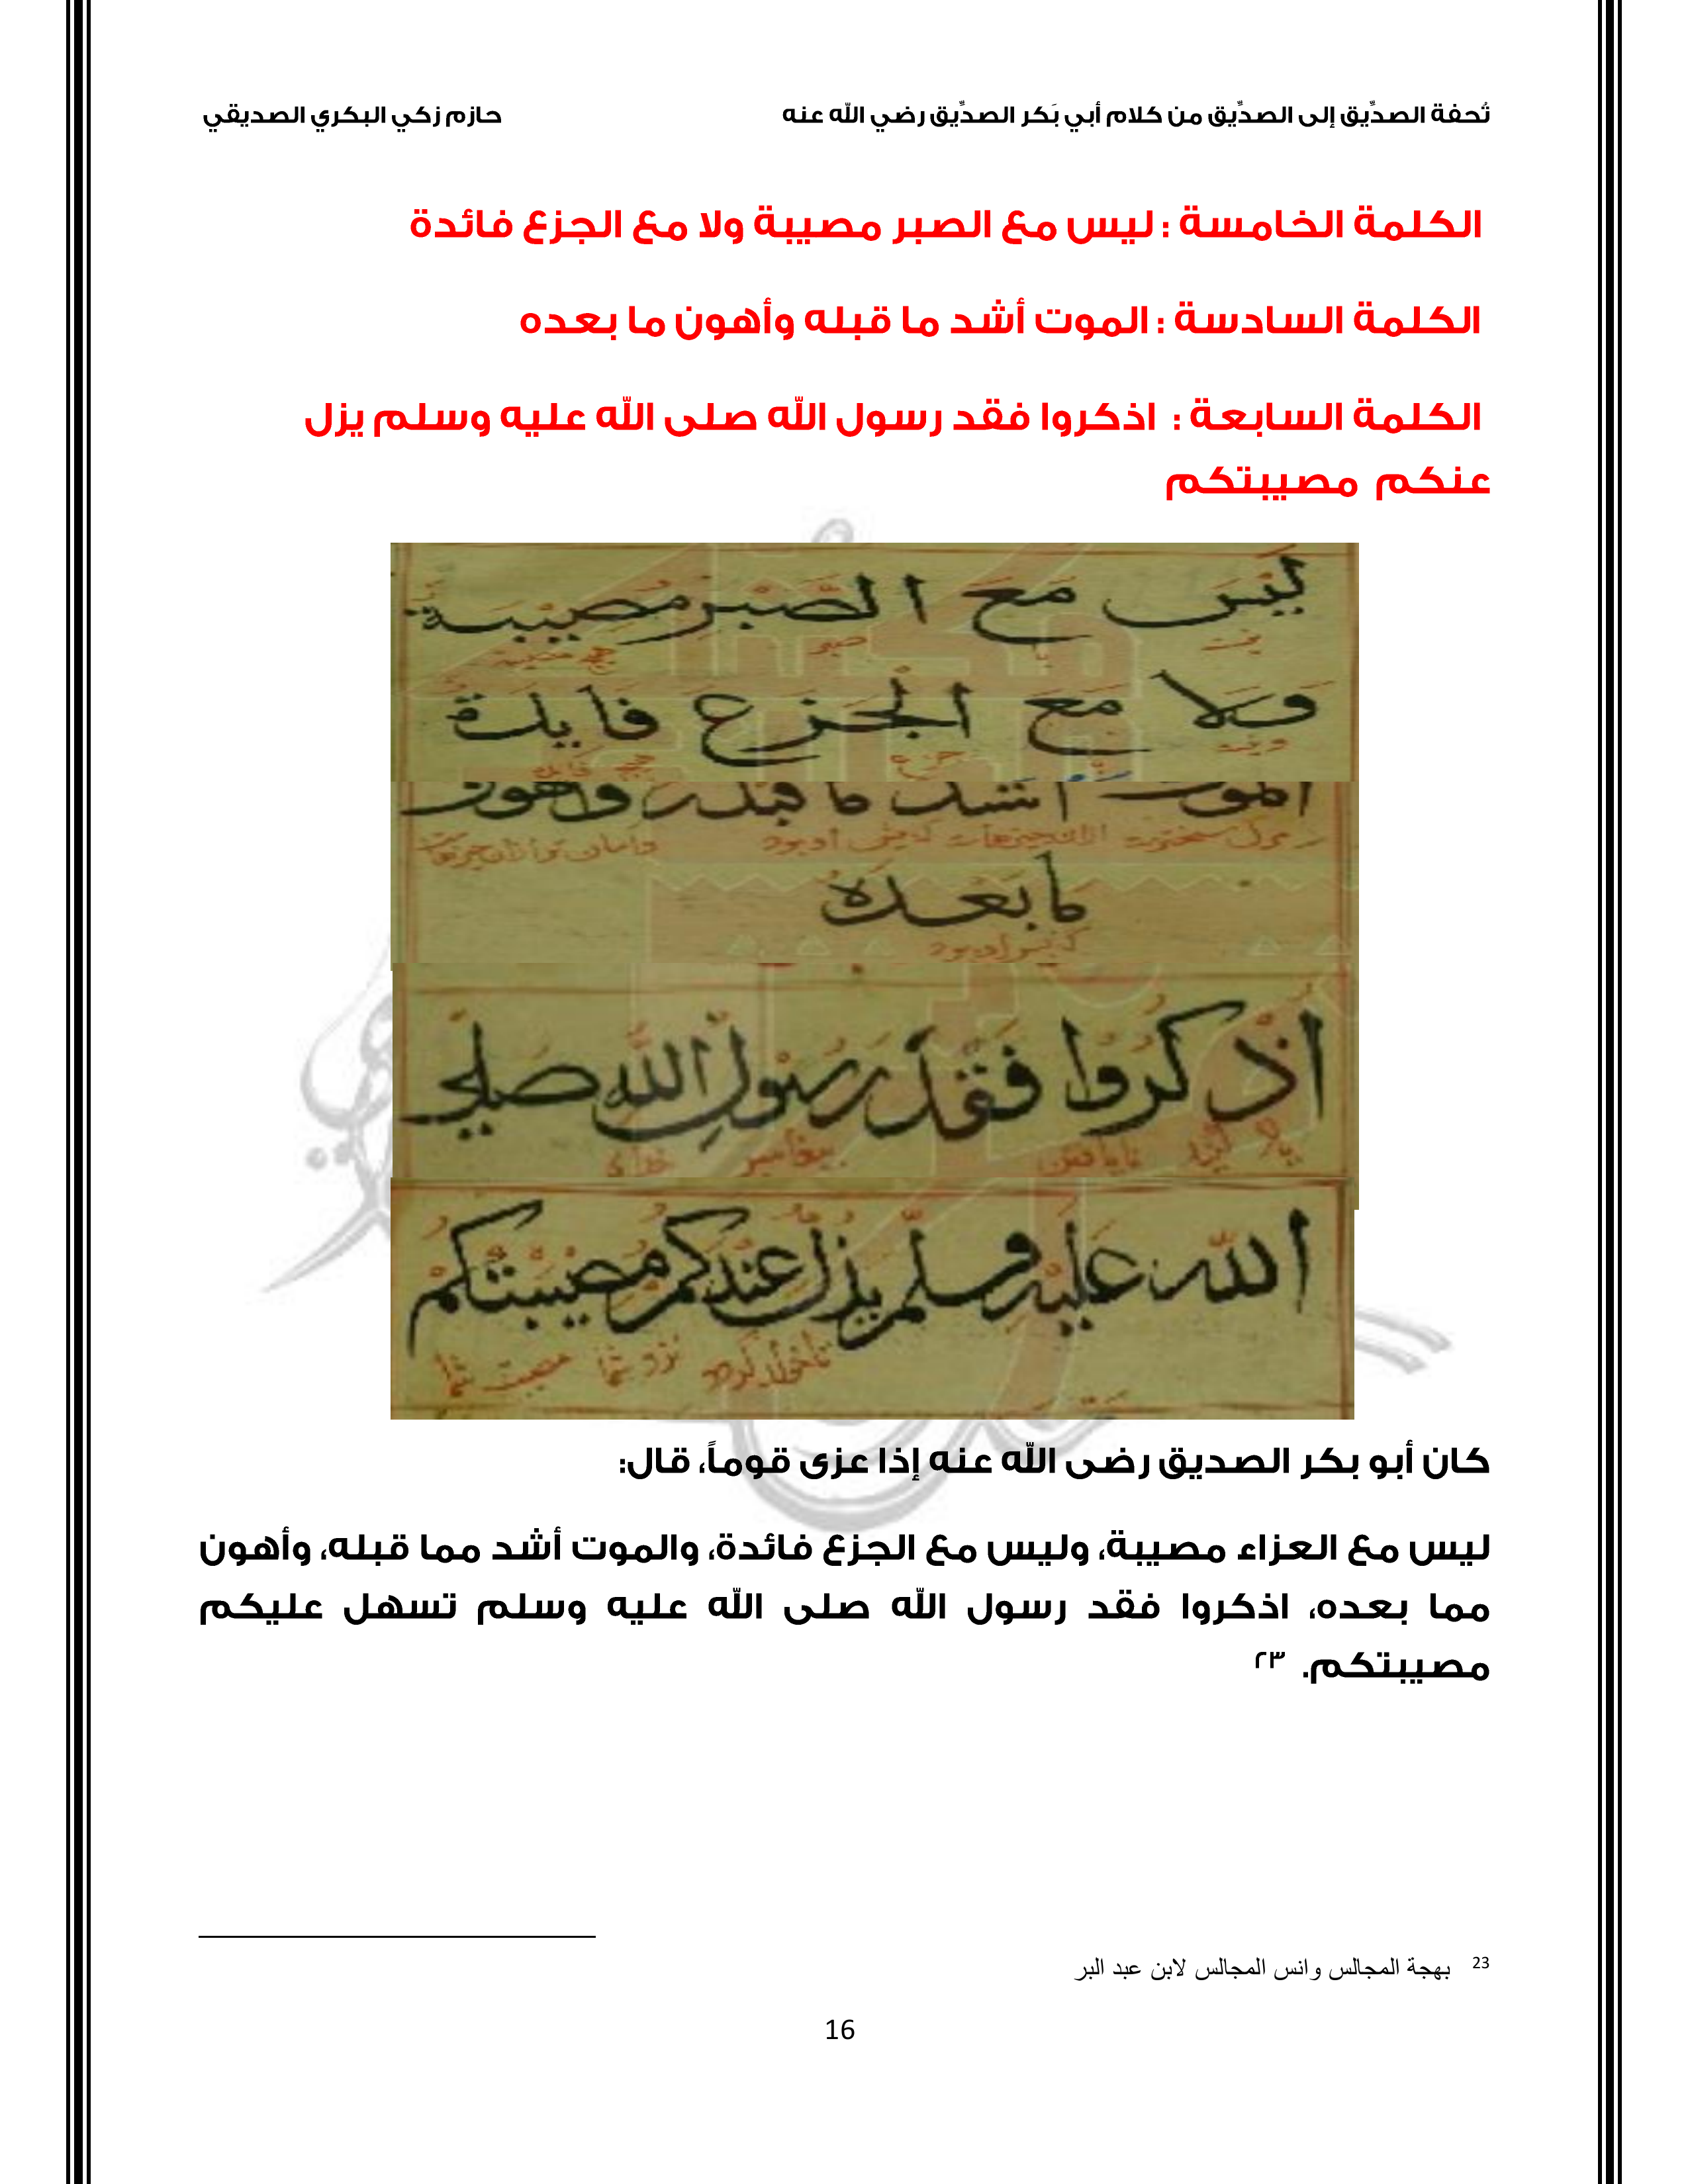 تُحفة الصدِّيق إلى الصدِّيق من كلام أبي بَكر الصدِّيق رضي الله عنه حازم زكي البكري الصديقي
الكلمة الخامسة : ليس مع الصبر مصيبة ولا مع الجزع فائدة
الكلمة السادسة : الموت أشد ما قبله وأهون ما بعده
الكلمة السابعة : اذكروا فقد رسول الله صلى الله عليه وسلم يزل
عنكم مصيبتكم
لَيْسَ مَعَ الصَّبْرِ مُصِيْبَةٌ
صبر
وَلَا مَعَ الْجَزَعِ فَايِدَةٌ
الموت اشد ما قبله واهون
مَا بَعْدَهُ
اُذْكُرُوا فَقْدَ رَسُوْلِ اللّٰهِ صَلَّى
پیغامبر خدای
اللّٰه عَلَيْهِ وسلّم يزل عَنْكُمْ مُصِيْبَتُكُمْ
مصیبت شما
كان أبو بكر الصديق رضى الله عنه إذا عزى قوماً، قال:
ليس مع العزاء مصيبة، وليس مع الجزع فائدة، والموت أشد مما قبله، وأهون
مما بعده، اذكروا فقد رسول الله صلى الله عليه وسلم تسهل عليكم
مصيبتكم. ٢٣
23 بهجة المجالس وانس المجالس لابن عبد البر
16